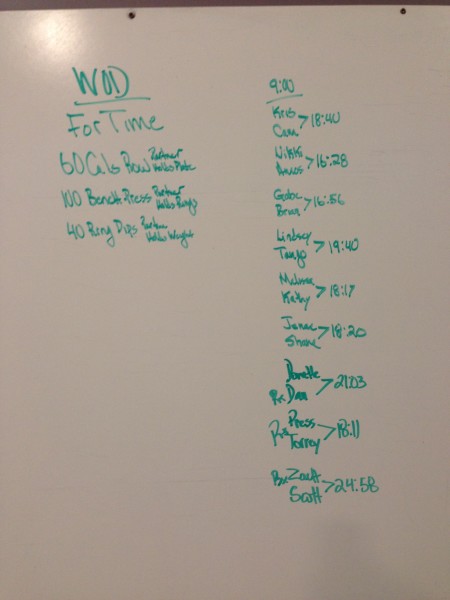 WOD
For Time
60 Cals Row Partner Holds Plate
100 Bench Press Partner Holds Rings
40 Ring Dips Partner Holds Weight
9:00
Kris
> 18:40
Nikki
> 16:28
Gabe
Brian
> 16:56
Lindsay
> 19:40
Melissa
Kathy
> 18:17
Shane
> 18:20
Rx Dan
> 21:03
Rx Press
Torrey
> 18:11
Zach
Scott
> 24:58